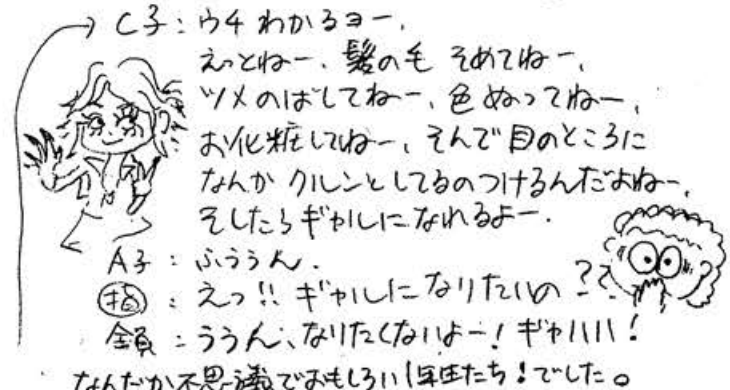 C子:ウチわかるヨー.
えっとねー、髪の毛 そめてねー、
ツメのばしてねー、色ぬってねー、
お化粧してねー、そんで目のところに
なんか クルンとしてるのつけるんだよねー.
そしたらギャルになれるよー.
A子:ふううん.
指:えっ!!ギャルになりたいの??
全員:ううん、なりたくないよー!ギャハハハ!
なんだか不思議でおもしろい1年生たち!でした。